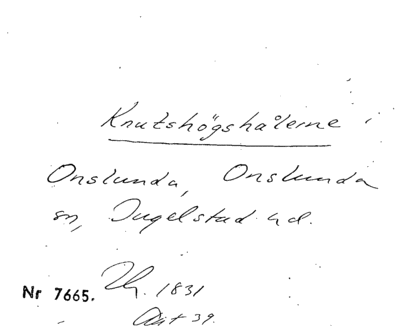 Knutshögshålerne i
Onslunda, Onslunda
sn, Ingelstad hd.
Nr 7665. Th. 1831
Akt 39.